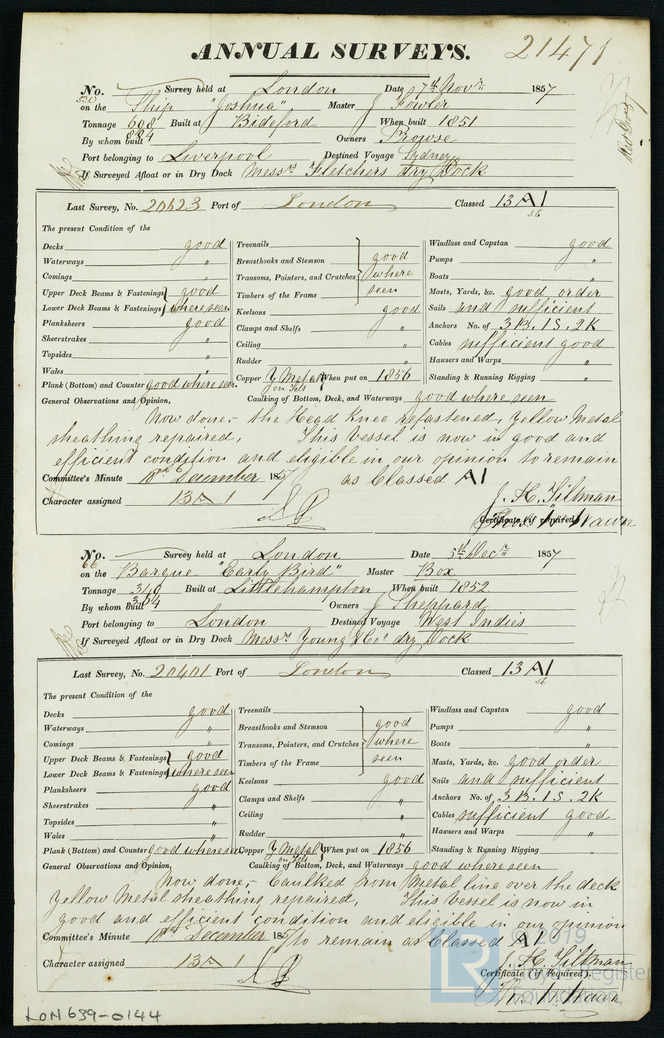 ANNUAL SURVEYS. 21471
No. Survey held at London Date 17th Novr 1857
520 on the Ship "Joshua" Master J Fowler
Tonnage 608 Built at Bideford When built 1851
884
By whom built Owners Prowse
Port belonging to Liverpool Destined Voyage Sydney
If Surveyed Afloat or in Dry Dock Messrs Fletchers dry Dock
Last Survey, No. 20623 Port of London Classed 13 A1
56
The present Condition of the
Decks good Treenails Windlass and Capstan good
Waterways " Breasthooks and Stemson good Pumps "
Comings " Transoms, Pointers, and Crutches where Boats "
Upper Deck Beams & Fastenings good Timbers of the Frame seen Masts, Yards, &c. good order
Lower Deck Beams & Fastenings where seen Keelsons good Sails and sufficient
Planksheers good Clamps and Shelfs " Anchors No. of 3 B. 1 S. 2 K
Sheerstrakes " Ceiling " Cables sufficient good
Topsides " Rudder " Hawsers and Warps "
Wales " Copper Y Metal on Felt When put on 1856 Standing & Running Rigging "
Plank (Bottom) and Counter good where seen Caulking of Bottom, Deck, and Waterways good where seen
General Observations and Opinion,
Now done,- the Head Knee refastened, Yellow Metal
sheathing repaired, This Vessel is now in good and
efficient condition and eligible in our opinion to remain
Committee's Minute 10th December 1857 as Classed A1
Character assigned 13 A 1 J. H. Tiltman
Certificate (if required)
No. Survey held at London Date 5th Decr 1857
66 on the Barque "Early Bird" Master Box
Tonnage 340 Built at Littlehampton When built 1852
304
By whom built Owners J Sheppard
Port belonging to London Destined Voyage West Indies
If Surveyed Afloat or in Dry Dock Messrs Young & Cos dry Dock
Last Survey, No. 20401 Port of London Classed 13 A1
56
The present Condition of the
Decks good Treenails Windlass and Capstan good
Waterways " Breasthooks and Stemson good Pumps "
Comings " Transoms, Pointers, and Crutches where Boats "
Upper Deck Beams & Fastenings good Timbers of the Frame seen Masts, Yards, &c. good order
Lower Deck Beams & Fastenings where seen Keelsons good Sails and sufficient
Planksheers good Clamps and Shelfs " Anchors No. of 3 B. 1 S. 2 K
Sheerstrakes " Ceiling " Cables sufficient good
Topsides " Rudder " Hawsers and Warps "
Wales " Copper Y Metal on Felt When put on 1856 Standing & Running Rigging "
Plank (Bottom) and Counter good where seen Caulking of Bottom, Deck, and Waterways good where seen
General Observations and Opinion,
Now done,- Caulked from Metal line over the deck
Yellow Metal sheathing repaired, This Vessel is now in
good and efficient condition and eligible in our opinion
Committee's Minute 10th December 1857 to remain as Classed A1
Character assigned 13 A 1 J. H. Tiltman
Certificate (if required).
© 2019
LR
LON 639-0144